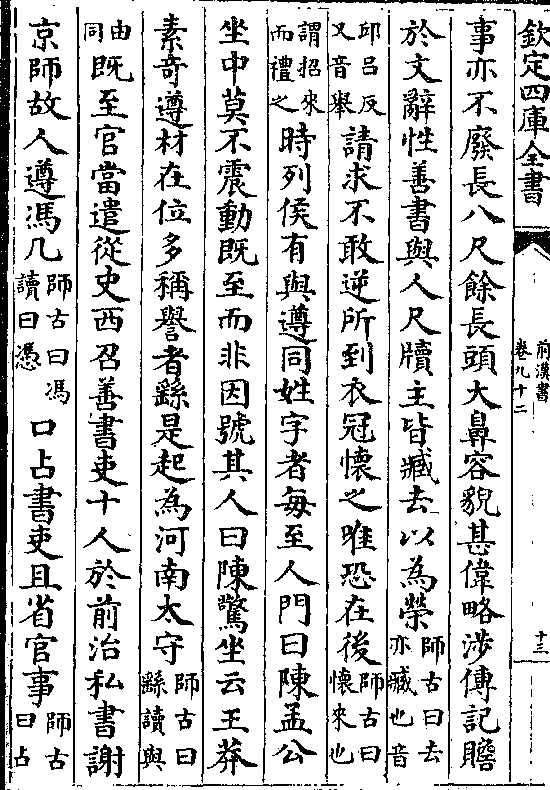 欽定四庫全書
前漢書
卷九十二
十三
事亦不廢長八尺餘長頭大鼻容貌甚偉略涉傳記贍
於文辭性善書與人尺牘主皆臧去以為榮師古曰去亦臧也音
邱呂反又音舉請求不敢逆所到衣冠懷之唯恐在後師古曰懷來也
謂招來而禮之時列侯有與遵同姓字者每至人門曰陳孟公
坐中莫不震動既至而非因號其人曰陳驚坐云王莽
素奇遵材在位多稱譽者繇是起為河南太守師古曰繇讀與
由同既至官當遣從史西召善書吏十人於前治私書謝
京師故人遵馮几師古曰馮讀曰憑口占書吏且省官事師古曰占